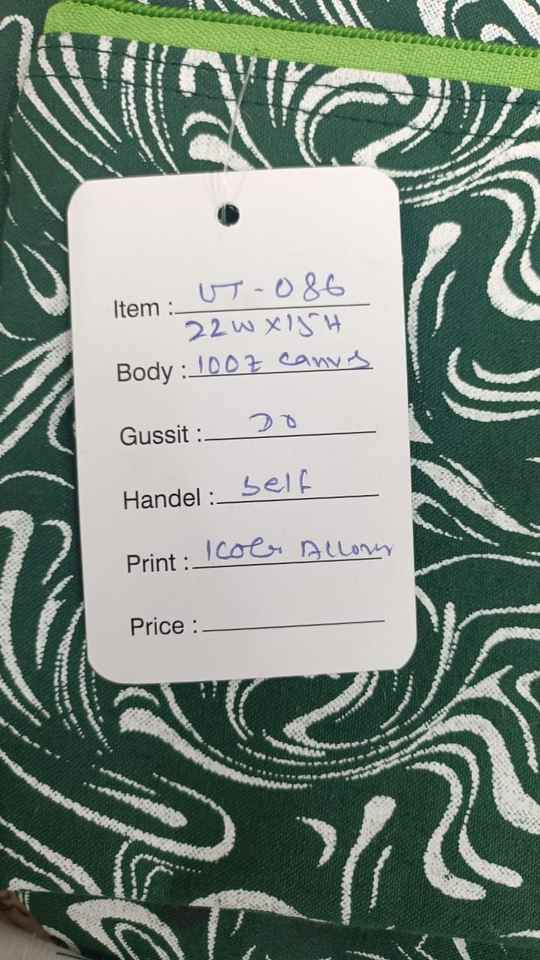 Item : VT-086
22W X15H
Body : 10OZ canvs
Gussit : DO
Handel : Self
Print : 1 Color Allover
Price :